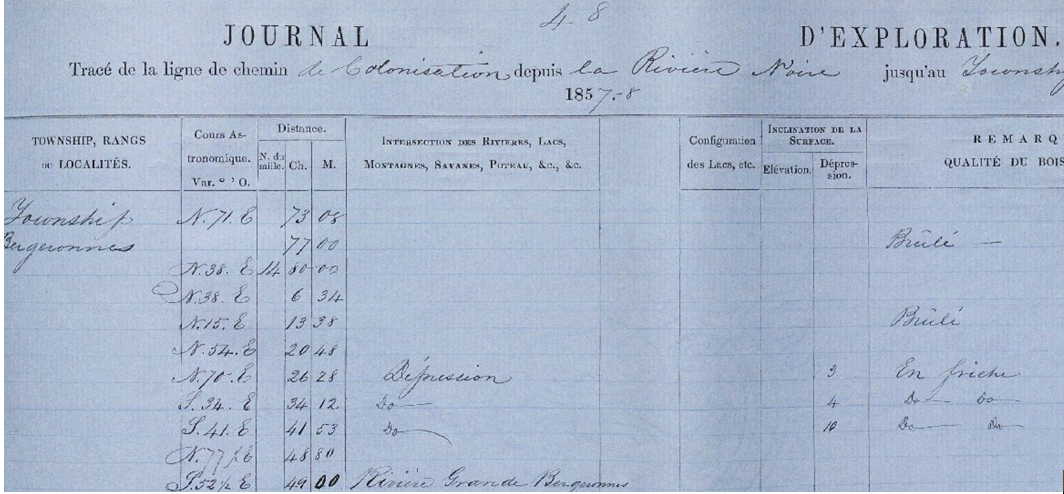 4-8
JOURNAL D'EXPLORATION.
Tracé de la ligne de chemin de Colonisation depuis la Rivière Noire jusqu'au Township
1857-8
TOWNSHIP, RANGS OU LOCALITÉS. Cours Astronomique. Var. ° ' O. Distance. N. du mille. Ch. M. INTERSECTION DES RIVIÈRES, LACS, MONTAGNES, SAVANES, POTEAU, &c., &c. Configuration des Lacs, etc. INCLINATION DE LA SURFACE. Elévation. Dépression. REMARQ QUALITÉ DU BOIS
Township N. 71. E 73 08
Bergeronnes 77 00 Brûlé —
N. 38. E 14 80 00
N. 38. E 6 34
N. 15. E 13 38 Brûlé
N. 54. E 20 48
N. 70. E 26 28 Dépression 3 En friche
S. 34. E 34 12 Do 4 Do Do
S. 41. E 41 53 Do 10 Do Do
N. 77½ E 48 80
S. 52½ E 49 00 Rivière Grande Bergeronnes